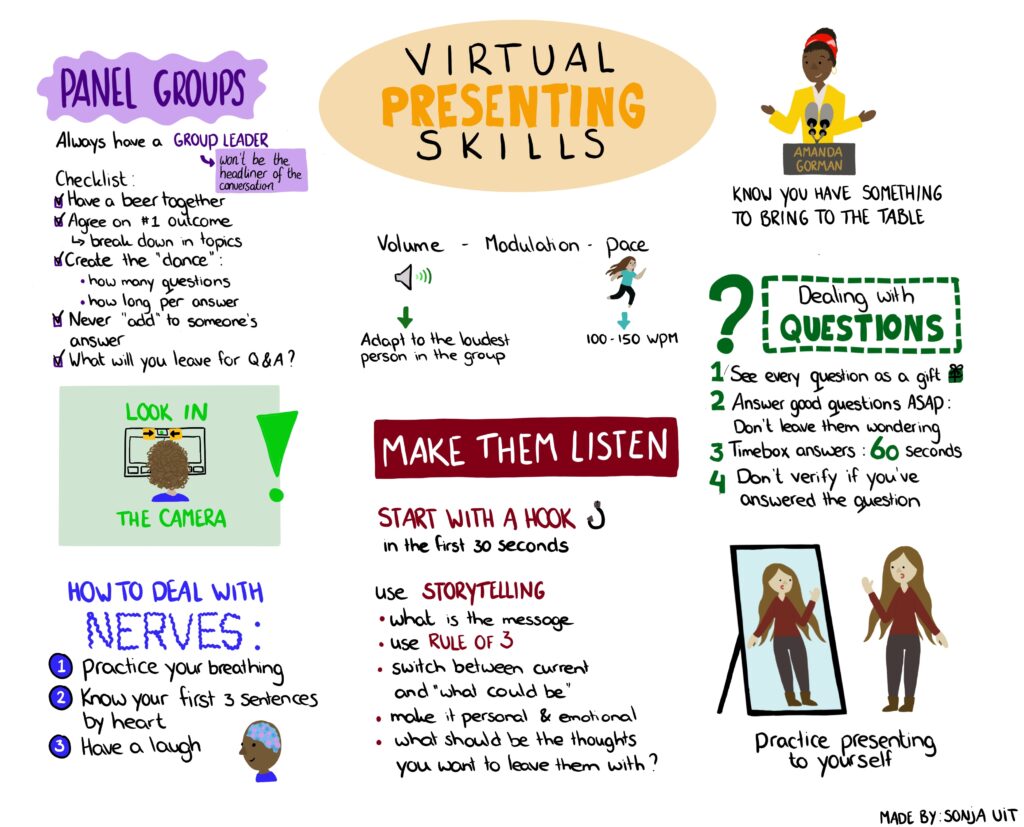 VIRTUAL
PRESENTING
SKILLS
PANEL GROUPS
Always have a GROUP LEADER
won't be the
headliner of the
conversation
Checklist:
Have a beer together
Agree on #1 outcome
↳ break down in topics
Create the "dance":
• how many questions
• how long per answer
Never "add" to someone's
answer
What will you leave for Q&A?
LOOK IN
THE CAMERA
!
HOW TO DEAL WITH
NERVES:
1 Practice your breathing
2 Know your first 3 sentences
by heart
3 Have a laugh
Volume - Modulation - Pace
Adapt to the loudest
person in the group
100-150 WPM
MAKE THEM LISTEN
START WITH A HOOK
in the first 30 seconds
use STORYTELLING
• what is the message
• use RULE OF 3
• switch between current
and "what could be"
• make it personal & emotional
• what should be the thoughts
you want to leave them with?
AMANDA
GORMAN
KNOW YOU HAVE SOMETHING
TO BRING TO THE TABLE
?
Dealing with
QUESTIONS
1 See every question as a gift
2 Answer good questions ASAP:
Don't leave them wondering
3 Timebox answers: 60 seconds
4 Don't verify if you've
answered the question
Practice presenting
to yourself
MADE BY: SONJA UIT